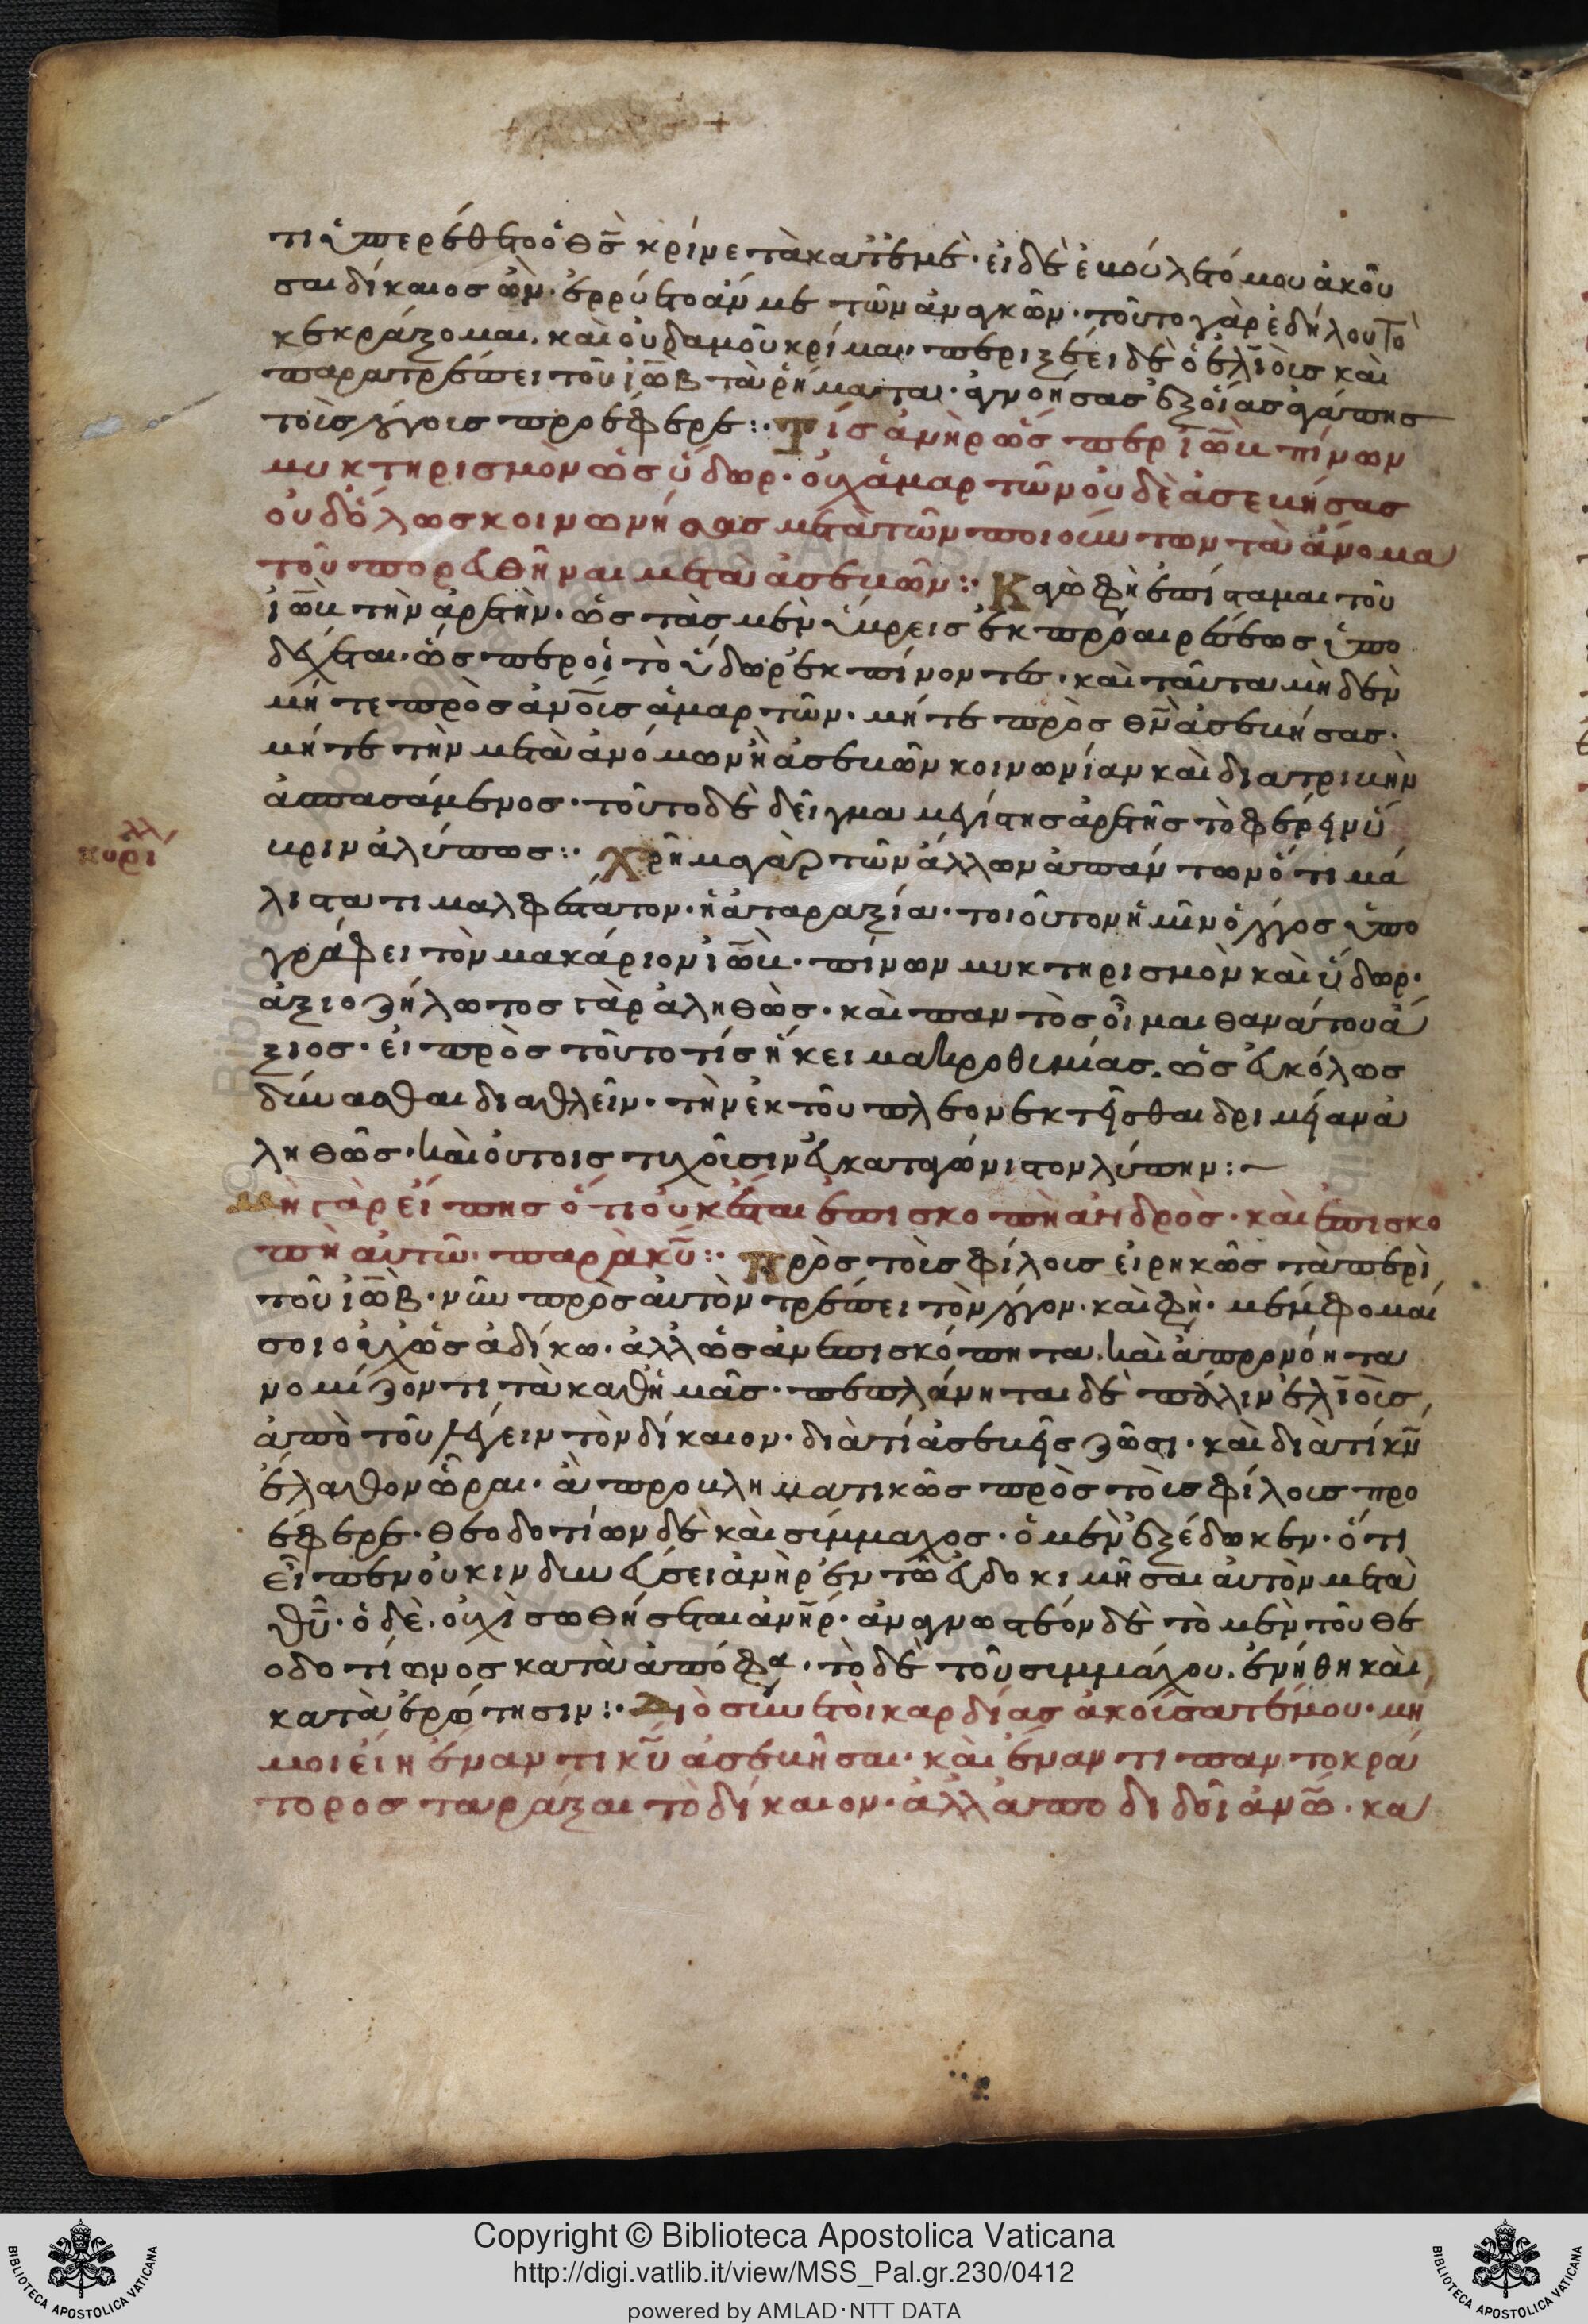 τι ὑπερέθετο ὁ θς̄ κρίνε τὰ κατ' ἐμέ· εἰ δὲ ἐβούλετό μου ἀκοῦ
σαι δίκαιος ὤν· ἐρρύετο ἄν με τῶν ἀναγκῶν· τοῦτο γὰρ ἐδήλου τὸ
κεκράξομαι. καὶ οὐδαμοῦ κρίμα·
παρατρέπει τοῦ ἰὼβ τὰ ῥήματα· ἀγνοήσας ἐξ οἵας ἀγάπης
τοῖς λόγοις προσέφερε:· Τίς ἀνὴρ ὥσπερ ἰὼβ πίνων
μυκτηρισμὸν ὡς ὕδωρ· οὐχ ἁμαρτῶν οὐδὲ ἀσεβήσας
οὐδ' ὅλως κοινωνήσας μετὰ τῶν ποιούντων τὰ ἄνομα
τοῦ πορευθῆναι μετὰ ἀσεβῶν:· Κἀγώ φη ἐπίσταμαι τοῦ
ἰὼβ τὴν ἀρετήν· ὡς τὰς μὲν ὕβρεις ἐκ προαιρέσεως ὑπο
δέχεται· ὥσπερ οἱ τὸ ὕδωρ ἐκπίνοντες· καὶ ταῦτα μηδὲν
μήτε πρὸς ἀνοῖς ἁμαρτῶν· μήτε πρὸς θν̄ ἀσεβήσας·
μήτε τὴν μετὰ ἀνόμων ἢ ἀσεβῶν κοινωνίαν καὶ διατριβὴν
ἀσπασάμενος· τοῦτο δὲ δεῖγμα μεγίστης ἀρετῆς τὸ φέρειν ὕ
βριν ἀλύπως:· Χρῆμα γὰρ τῶν ἄλλων ἁπάντων ὅτι μά
λιστα τιμαλφέστατον· ἡ ἀταραξία· τοιοῦτον ἡμῖν ὁ λόγος ὑπο
γράφει τὸν μακάριον ἰώβ· πίνων μυκτηρισμὸν καὶ ὕδωρ·
ἀξιοζήλωτος γὰρ ἀληθῶς· καὶ παντὸς οἶμαι θαμάτου ἄ
ξιος· εἰ πρὸς τοῦτό τις ἥκει μακροθυμίας· ὡς εὐκόλως
δύνασθαι διαθλεῖν· τὴν ἐκ τοῦ πλεονεκτεῖσθαι δριμεῖαν ἀ
ληθῶς· καὶ οὔτοι
Μὴ γὰρ εἴπης ὅτι οὐκ ἔσται ἐπισκοπὴ ἀνδρός· καὶ ἐπισκο
πὴ αὐτῶ παρὰ κῡ:· Πρὸς τοῖς φίλοις εἰρηκὼς τὰ περὶ
τοῦ ἰώβ· νῦν πρὸς αὐτὸν τρέπει τὸν λόγον· καὶ φη· μέμφομαί
σοι οὐχ ὡς ἀδίκω· ἀλλ' ὡς ἀνεπισκόπητα· καὶ ἀπρονόητα
νομίζοντι τὰ καθ' ἡμᾶς· πεπλάνηται δὲ πάλιν ἐλῑοῖς
ἀπὸ τοῦ λέγειν τὸν δίκαιον· διὰ τί ἀσεβεῖς ζῶσι· καὶ διὰ τί κν̄
ἔλαθον ὧραι· ἃ προβληματικῶς πρὸς τοῖς φίλοις προ
έφερε· θεοδοτίων δὲ καὶ σύμμαχος· ὁ μὲν ἐξέδωκεν· ὅτι
εἶπεν οὐ κινδυνεύσει ἀνὴρ ἐν τῶ εὐδοκιμῆσαι αὐτὸν μετὰ
θῡ· ὁ δὲ· οὐχὶ σωθήσεται ἀνήρ· ἀναγνωστέον δὲ τὸ μὲν τοῦ θε
οδοτίωνος κατὰ ἀπόφα· τὸ δὲ τοῦ συμμάχου·
κατὰ ἐρώτησιν:· Διὸ συνετοὶ καρδίας ἀκούσατέ μου· μή
μοι εἴη ἔναντι κῡ ἀσεβῆσαι· καὶ ἔναντι παντοκρά
τορος ταράξαι τὸ δίκαιον· ἀλλὰ ἀποδιδοῖ ἀνῶ· κα
Copyright © Biblioteca Apostolica Vaticana
http://digi.vatlib.it/view/MSS_Pal.gr.230/0412
powered by AMLAD·NTT DATA